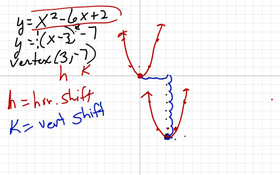 y = x² - 6x + 2
y = 1(x - 3)² - 7
vertex (3, -7)
h k
h = hor. shift
K = vert shift